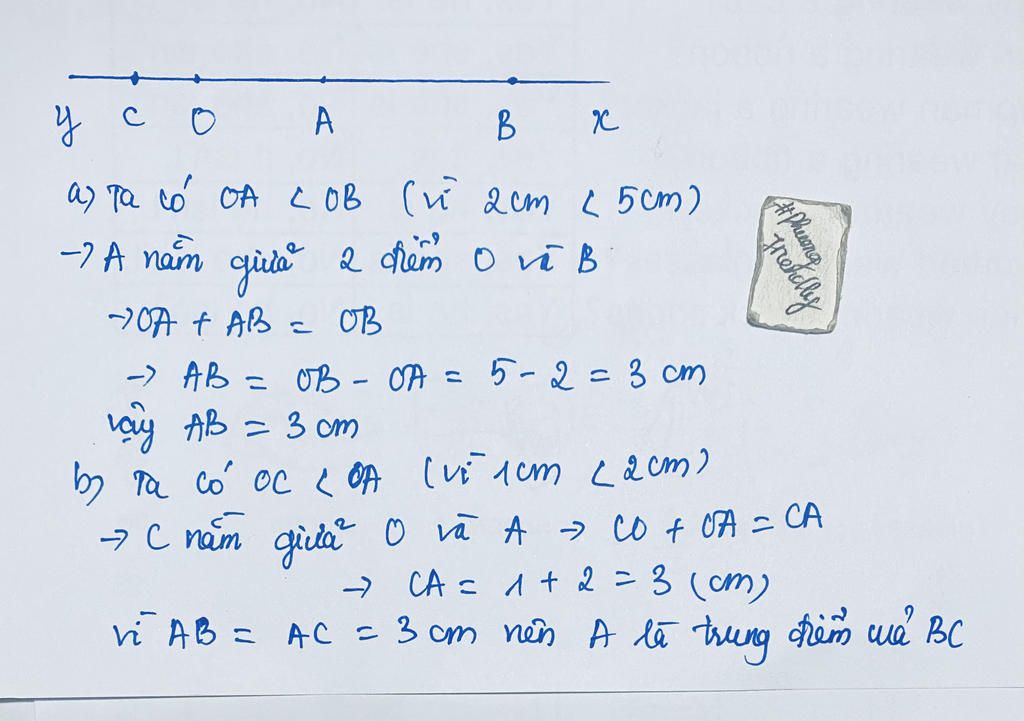 y C O A B x
a) Ta có OA < OB (vì 2cm < 5cm)
→ A nằm giữa 2 điểm O và B
#Phuong
Trendlly
→ OA + AB = OB
→ AB = OB - OA = 5 - 2 = 3 cm
vậy AB = 3 cm
b) Ta có OC < OA (vì 1cm < 2cm)
→ C nằm giữa O và A → CO + OA = CA
→ CA = 1 + 2 = 3 (cm)
vì AB = AC = 3 cm nên A là trung điểm của BC